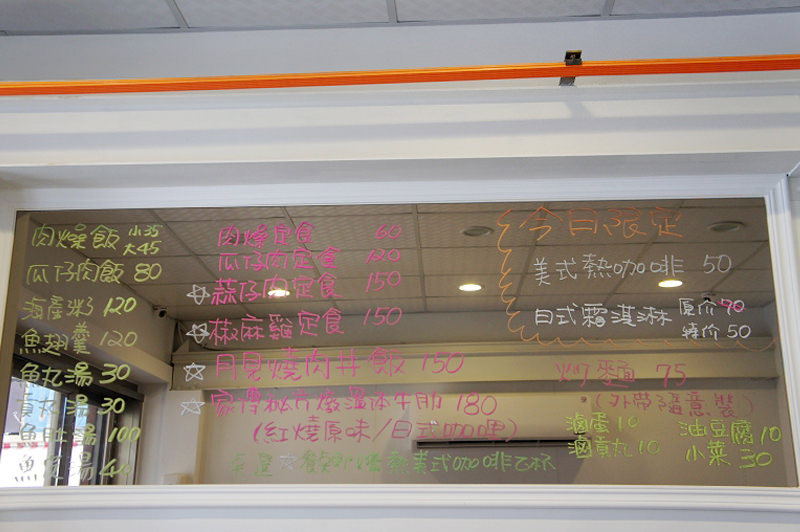 肉燥飯 小35
大45
瓜仔肉飯 80
海產粥 120
魚翅羹 120
魚丸湯 30
貢丸湯 30
魚肚湯 100
肉燥定食 60
瓜仔肉定食 120
☆蒜仔肉定食 150
☆椒麻雞定食 150
☆月見燒肉丼飯 150
☆家傳秘方燉溫体牛肋 180
(紅燒原味/日式咖哩)
今日限定
美式熱咖啡 50
日式霜淇淋 原价70
特价50
麵 75
*(外帶隨意裝)
滷蛋10
滷貢丸10
油豆腐10
小菜30